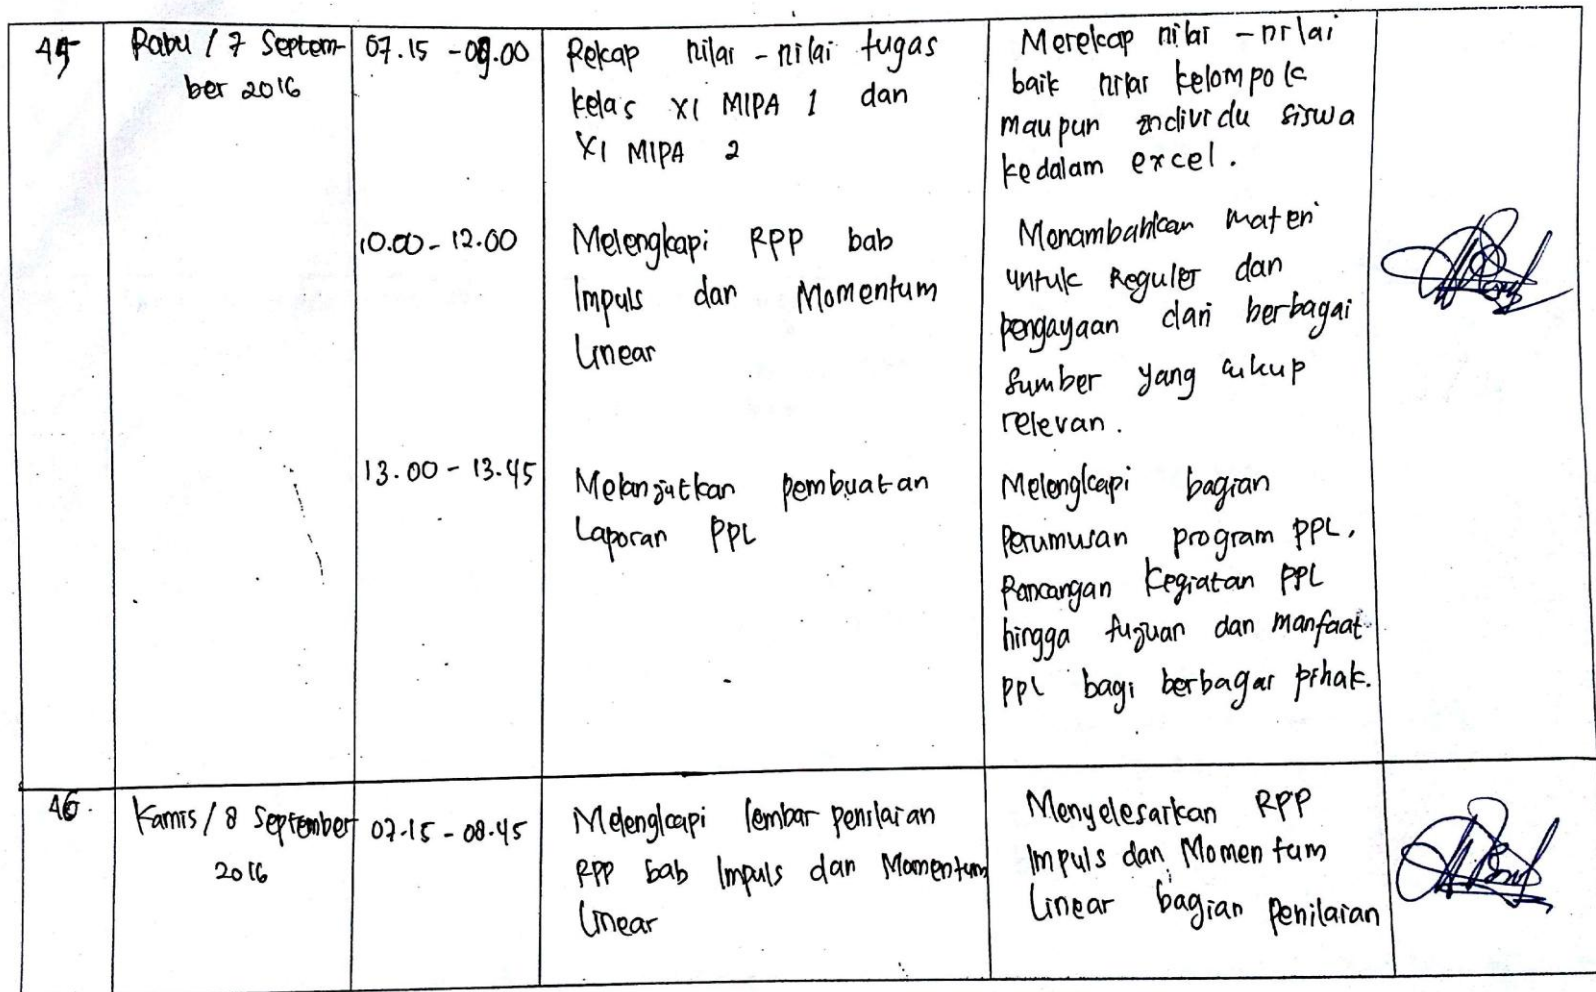 45
Rabu / 7 Septem-
ber 2016
07.15 - 09.00
Rekap nilai - nilai tugas
kelas XI MIPA 1 dan
XI MIPA 2
Merekap nilai - nilai
baik nilai kelompok
maupun individu siswa
kedalam excel.
10.00 - 12.00
Melengkapi RPP bab
Impuls dan Momentum
Linear
Menambahkan materi
untuk Reguler dan
pengayaan dari berbagai
sumber yang cukup
relevan.
13.00 - 13.45
Melanjutkan pembuatan
Laporan PPL
Melengkapi bagian
Perumusan program PPL,
Rancangan Kegiatan PPL
hingga tujuan dan manfaat
PPL bagi berbagai pihak.
46.
Kamis / 8 September
2016
07.15 - 08.45
Melengkapi lembar penilaian
RPP bab Impuls dan Momentum
Linear
Menyelesaikan RPP
Impuls dan Momentum
Linear bagian Penilaian